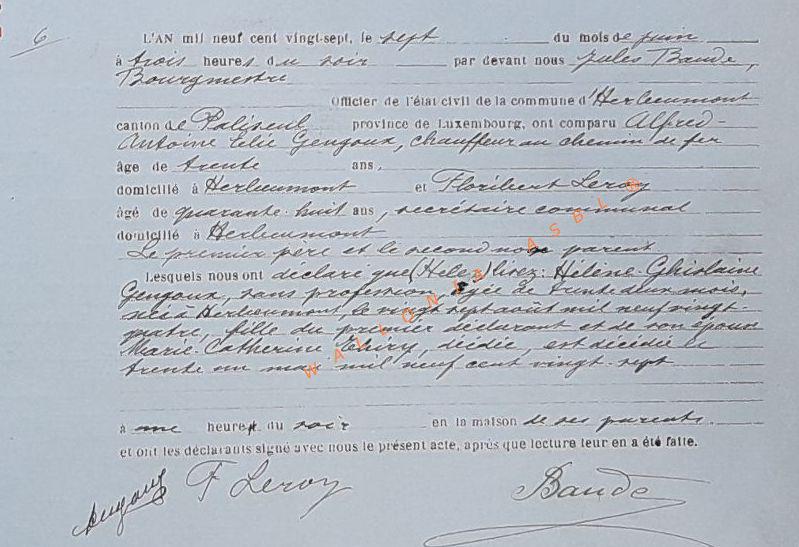 6
L'AN mil neuf cent vingt-sept, le sept du mois de juin
à trois heures du soir par devant nous Jules Baude,
Bourgmestre
Officier de l'état civil de la commune d'Herbeumont
canton de Paliseul province de Luxembourg, ont comparu Alfred-
Antoine Elie Gengoux, chauffeur au chemin de fer
âge de trente ans,
domicilié à Herbeumont et Floribert Leroy
âgé de quarante-huit ans, secrétaire communal
domicilié à Herbeumont
Le premier père et le second non parent
Lesquels nous ont déclaré que (Hele) lisez: Hélène-Ghislaine
Gengoux, sans profession, âgée de trente deux mois,
née à Herbeumont, le vingt sept août mil neuf vingt
quatre, fille du premier déclarant et de son épouse
Marie-Catherine Thiry, décédée, est décédée le
trente un mai mil neuf cent vingt-sept
à une heure du soir en la maison de ses parents.
et ont les déclarants signé avec nous le présent acte, après que lecture leur en a été faite.
Gengoux F Leroy Baude
WALLONIA ASBL ©